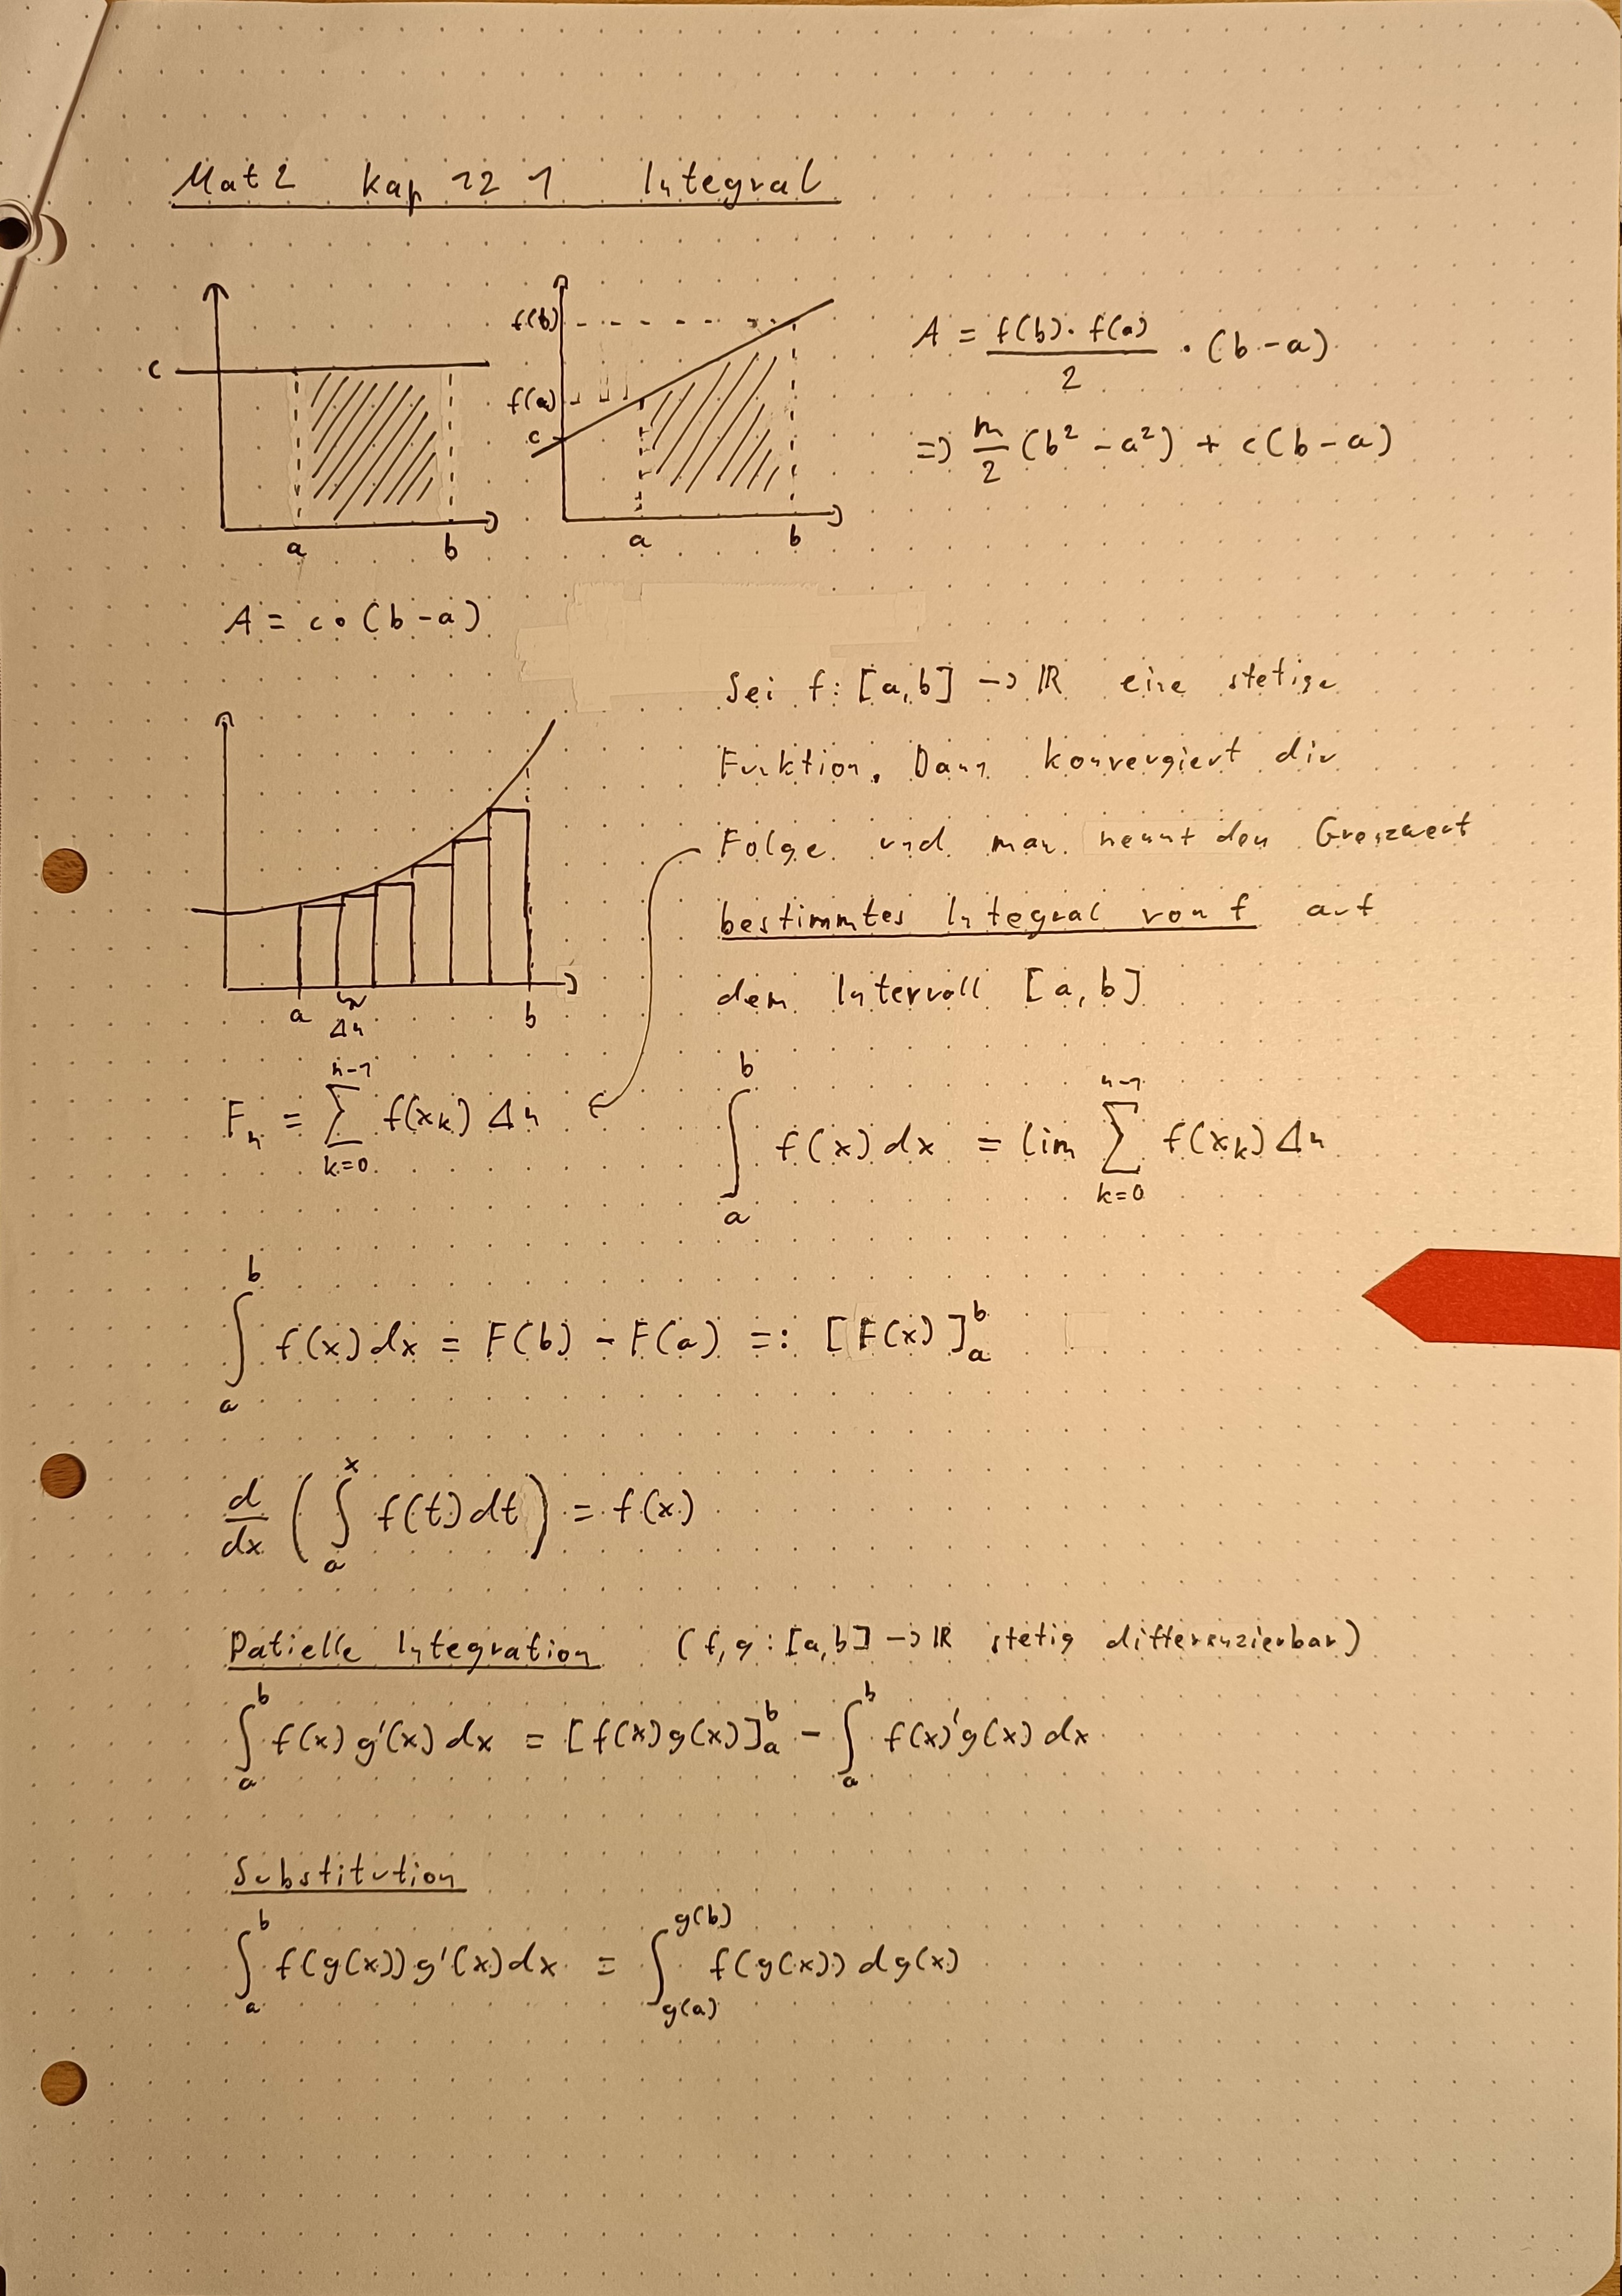 Mat 2 Kap 12 1 Integral
c
a b
f(b)
f(a)
c
a b
A = f(b) · f(a) / 2 · (b - a)
=> m/2 (b² - a²) + c(b - a)
A = c · (b - a)
a Δn b
Sei f: [a,b] -> ℝ eine stetige
Funktion. Dann konvergiert die
Folge und man nennt den Grenzwert
bestimmtes Integral von f auf
dem Intervall [a, b]
Fₙ = ∑_{k=0}^{n-1} f(x_k) Δn
∫_a^b f(x) dx = lim ∑_{k=0}^{n-1} f(x_k) Δn
∫_a^b f(x) dx = F(b) - F(a) =: [F(x)]_a^b
d/dx ( ∫_a^x f(t) dt ) = f(x)
Patielle Integration (f,g : [a,b] -> ℝ stetig differenzierbar)
∫_a^b f(x) g'(x) dx = [f(x) g(x)]_a^b - ∫_a^b f(x)' g(x) dx
Substitution
∫_a^b f(g(x)) g'(x) dx = ∫_{g(a)}^{g(b)} f(g(x)) dg(x)